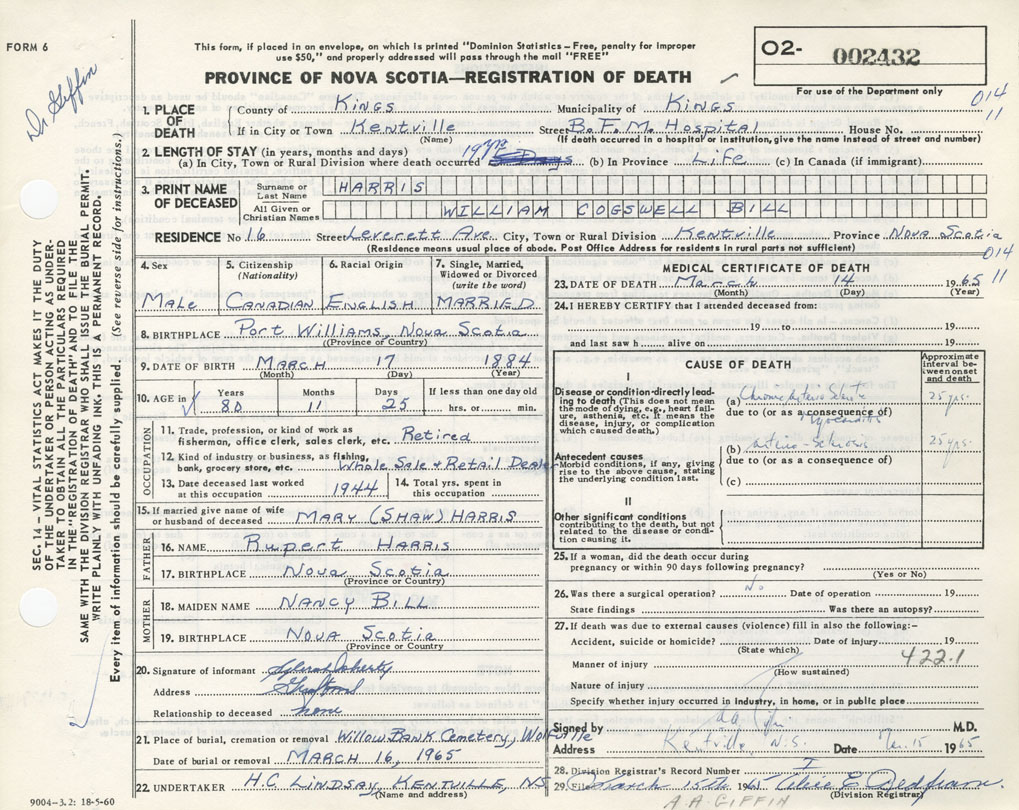 FORM 6
This form, if placed in an envelope, on which is printed "Dominion Statistics – Free, penalty for improper
use $50," and properly addressed will pass through the mail "FREE"
PROVINCE OF NOVA SCOTIA—REGISTRATION OF DEATH
O2- 002432
For use of the Department only
014
11
Dr Giffin
SEC. 14 – VITAL STATISTICS ACT MAKES IT THE DUTY
OF THE UNDERTAKER OR PERSON ACTING AS UNDER-
TAKER TO OBTAIN ALL THE PARTICULARS REQUIRED
IN THE "REGISTRATION OF DEATH" AND TO FILE THE
SAME WITH THE DIVISION REGISTRAR WHO SHALL ISSUE THE BURIAL PERMIT.
WRITE PLAINLY WITH UNFADING INK. THIS IS A PERMANENT RECORD.
Every item of information should be carefully supplied. (See reverse side for instructions.)
1. PLACE OF DEATH County of Kings Municipality of Kings
If in City or Town Kentville Street B.F.M. Hospital House No.
(Name) (If death occurred in a hospital or institution, give the name instead of street and number)
2. LENGTH OF STAY (in years, months and days)
(a) In City, Town or Rural Division where death occurred 19 yrs (b) In Province Life (c) In Canada (if immigrant)
3. PRINT NAME OF DECEASED Surname or Last Name HARRIS
All Given or Christian Names WILLIAM COGSWELL BILL
RESIDENCE No 16 Street Leverett Ave. City, Town or Rural Division Kentville Province Nova Scotia
(Residence means usual place of abode. Post Office Address for residents in rural parts not sufficient)
014
11
4. Sex Male
5. Citizenship (Nationality) CANADIAN
6. Racial Origin ENGLISH
7. Single, Married, Widowed or Divorced (write the word) MARRIED
8. BIRTHPLACE Port Williams, Nova Scotia
(Province or Country)
9. DATE OF BIRTH MARCH 17 1884
(Month) (Day) (Year)
10. AGE in Years 80 Months 11 Days 25 If less than one day old hrs. or min.
OCCUPATION
11. Trade, profession, or kind of work as fisherman, office clerk, sales clerk, etc. Retired
12. Kind of industry or business, as fishing, bank, grocery store, etc. Whole Sale + Retail Dealer
13. Date deceased last worked at this occupation 1944
14. Total yrs. spent in this occupation
15. If married give name of wife or husband of deceased MARY (SHAW) HARRIS
FATHER
16. NAME Rupert HARRIS
17. BIRTHPLACE Nova Scotia
(Province or Country)
MOTHER
18. MAIDEN NAME NANCY BILL
19. BIRTHPLACE Nova Scotia
(Province or Country)
20. Signature of informant
Address
Relationship to deceased none
21. Place of burial, cremation or removal Willow Bank Cemetery, Wolfville
Date of burial or removal MARCH 16, 1965
22. UNDERTAKER H.C. LINDSAY, KENTVILLE, NS
(Name and address)
9004–3.2: 18-5-60
MEDICAL CERTIFICATE OF DEATH
23. DATE OF DEATH March 14 1965
(Month) (Day) (Year)
24. I HEREBY CERTIFY that I attended deceased from:
19 to 19
and last saw h alive on 19
CAUSE OF DEATH
Approximate interval between onset and death
I
Disease or condition directly leading to death (This does not mean the mode of dying, e.g., heart failure, asthenia, etc. It means the disease, injury, or complication which caused death.)
(a) Chronic 25 yrs.
due to (or as a consequence of)
Myocarditis
(b) arterio-sclerosis 25 yrs.
Antecedent causes
Morbid conditions, if any, giving rise to the above cause, stating the underlying condition last.
due to (or as a consequence of)
(c)
II
Other significant conditions
contributing to the death, but not related to the disease or condition causing it.
25. If a woman, did the death occur during
pregnancy or within 90 days following pregnancy?
(Yes or No)
26. Was there a surgical operation? No Date of operation 19
State findings Was there an autopsy?
27. If death was due to external causes (violence) fill in also the following:–
Accident, suicide or homicide? Date of injury 19
(State which)
422.1
Manner of injury
(How sustained)
Nature of injury
Specify whether injury occurred in Industry, in home, or in public place
Signed by M.D.
Address Kentville, N.S. Date Mar. 15 1965
28. Division Registrar's Record Number
29. Filed March 15th 1965 Alice E.
(Division Registrar)
A.A. GIFFIN